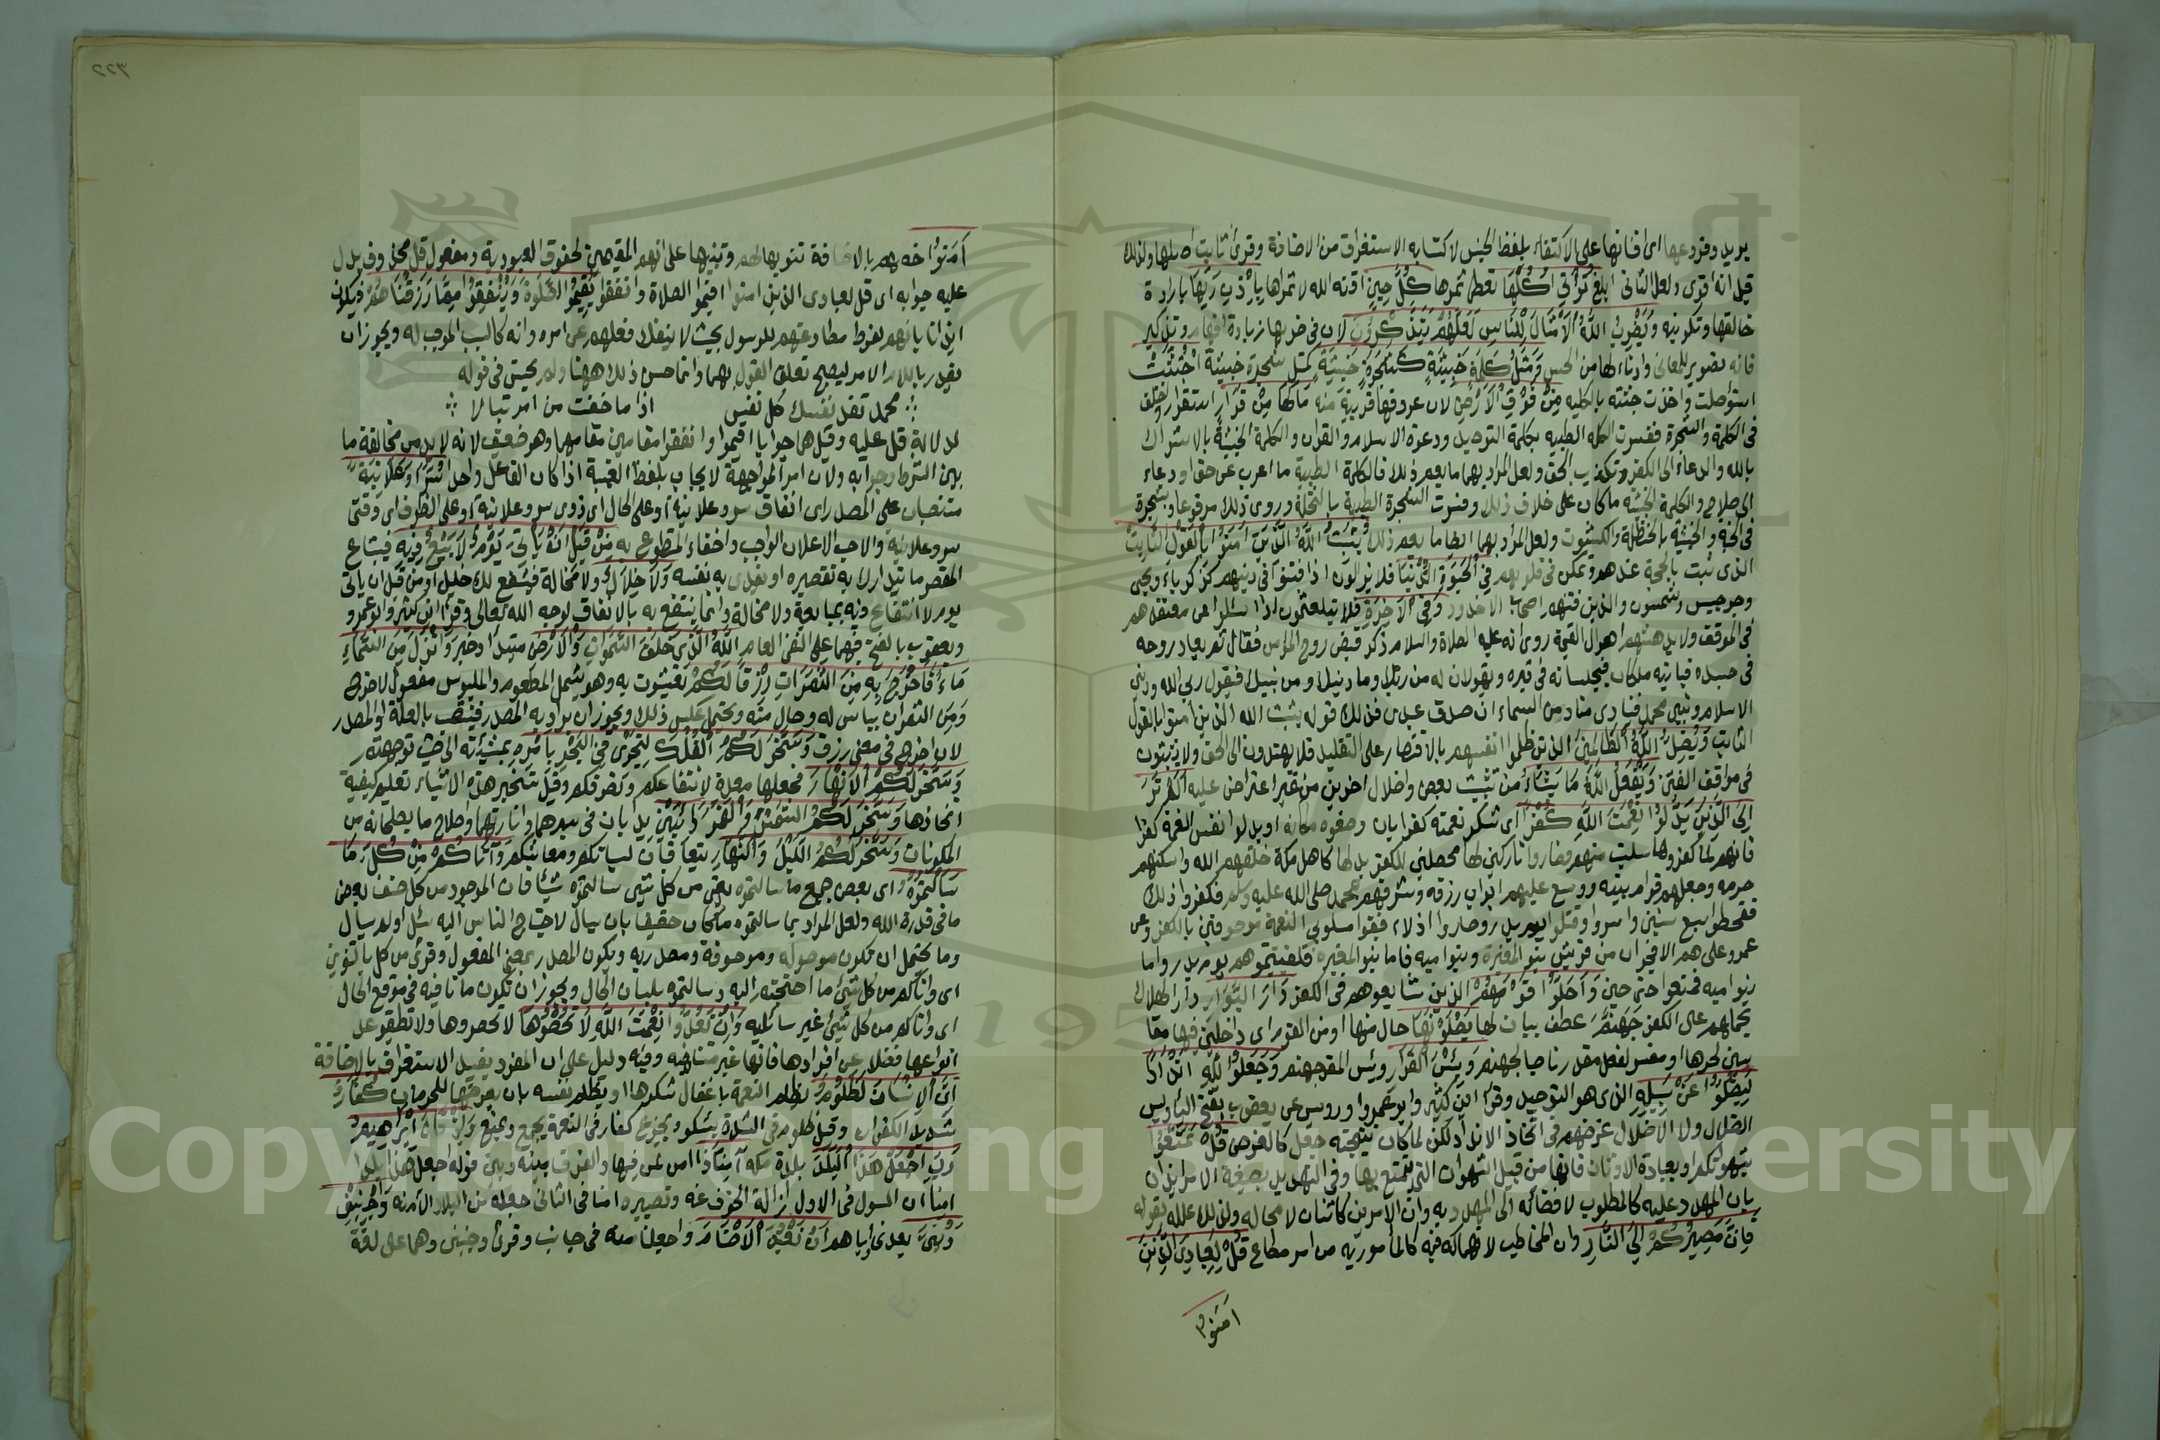 يريد وفروعها اى افنانها على الاكتفاء بلفظ الجنس لاكتسابه الاستغراق من الاضافة وقرئ ثابت اصلها ولذلك
قيل انه اقوى ولعل الثانى ابلغ تُؤْتِى اُكُلَهَا تعطى ثمرها كُلَّ حِينٍ اقته الله لاثمارها بِاِذْنِ رَبِّهَا بارادة
خالقها وتكوينه وَيَضْرِبُ اللَّهُ الْاَمْثَالَ لِلنَّاسِ لَعَلَّهُمْ يَتَذَكَّرُونَ لان فى ضربها زيادة افهام وتذكير
فانه تصوير للمعانى وادناء لها من الحس وَمَثَلُ كَلِمَةٍ خَبِيثَةٍ كَشَجَرَةٍ خَبِيثَةٍ كمثل شجرة خبيثة اجْتُثَّتْ
استؤصلت واخذت جثته بالكليه مِنْ فَوْقِ الْاَرْضِ لان عروقها قريبة منه مَا لَهَا مِنْ قَرَارٍ استقرار واختلف
فى الكلمة والشجرة ففسرت الكلمه الطيبه بكلمة التوحيد ودعوة الاسلام والقران والكلمة الخبيثة بالاشراك
بالله والدعاء الى الكفر وتكذيب الحق ولعل المراد بهما ما يعم ذلك فالكلمة الطيبة ما اعرب عن حق او دعاء
الى صلاح والكلمة الخبيثه ما كان على خلاف ذلك وفسرت الشجرة الطيبة بالنخلة وروى ذلك مرفوعا وبشجرة
فى الجنه والخبيثة بالحنظلة والكشوت ولعل المراد بهما ايضا ما يعم ذلك يُثَبِّتُ اللَّهُ الَّذِينَ اٰمَنُوا بِالْقَوْلِ الثَّابِتِ
الذى ثبت بالحجة عندهم وتمكن فى قلوبهم فِى الْحَيٰوةِ الدُّنْيَا فلا يزالون اذا فتنوا فى دينهم كزكرياء ويحيى
وجرجيس وشمسون والذين فتنهم اصحاب الاخدود وَفِى الْاٰخِرَةِ فلا يتلعثمون اذا سئلوا عن معتقدهم
فى الموقف ولا يدهشهم اهوال القيمة روى انه عليه الصلاة والسلام ذكر قبض روح المؤمن فقال ثم يعاد روحه
فى جسده فياتيه ملكان فيجلسانه فى قبره ويقولان له من ربك وما دينك ومن نبيك فيقول ربى الله ودينى
الاسلام ونبيى محمد فينادى مناد من السماء ان صدق عبدى فذلك قوله يثبت الله الذين امنوا بالقول
الثابت وَيُضِلُّ اللَّهُ الظَّالِمِينَ الذين ظلموا انفسهم بالاقتصار على التقليد فلا يهتدون الى الحق ولا يثبتون
فى مواقف الفتن وَيَفْعَلُ اللَّهُ مَا يَشَاءُ من تثبيت بعض واضلال اخرين من غير اعتراض عليه اَلَمْ تَرَ
اِلَى الَّذِينَ بَدَّلُوا نِعْمَتَ اللَّهِ كُفْرًا اى شكر نعمته كفرا بان وضعوه مكانه او بدلوا نفس النعمة كفرا
فانهم لما كفروها سلبت منهم فصاروا تاركين لها محصلين للكفر بدلها كاهل مكة خلقهم الله واسكنهم
حرمه وجعلهم قوام بيته ووسع عليهم ابواب رزقه وشرفهم بمحمد صلى الله عليه وسلم فكفروا ذلك
فقحطوا سبع سنين واسروا وقتلوا يوم بدر وصاروا اذلاء فبقوا مسلوبى النعمة موصوفين بالكفر وعن
عمر وعلى هم الافجران من قريش بنو المغيرة وبنو اميه فاما بنو المغيرة فكفيتموهم يوم بدر واما
بنو اميه فمتعوا حتى حين وَاَحَلُّوا قَوْمَهُمْ الذين شايعوهم فى الكفر دَارَ الْبَوَارِ دار الهلاك
بحملهم على الكفر جَهَنَّمَ عطف بيان لها يَصْلَوْنَهَا حال منها او من القوم اى داخلين فيها مقا
سين لحرها او مفسر لفعل مقدر ناصب لجهنم وَبِئْسَ الْقَرَارُ وبئس المقر جهنم وَجَعَلُوا لِلَّهِ اَنْدَادًا
لِيُضِلُّوا عَنْ سَبِيلِهِ الذى هو التوحيد وقرأ ابن كثير وابو عمرو ورويس عن يعقوب بفتح الياء وليس
الضلال ولا الاضلال غرضهم فى اتخاذ الانداد لكن لما كان نتيجته جعل كالغرض قُلْ تَمَتَّعُوا
بشهواتكم او بعبادة الاوثان فانها من قبيل الشهوات التى يتمتع بها وفى التهديد بصيغة الامر ايذان
بان المهدد عليه كالمطلوب لافضائه الى المهدد به وان الامرين كائنان لا محاله ولذلك علله بقوله
فَاِنَّ مَصِيرَكُمْ اِلَى النَّارِ وان المخاطب لانهماكه فيه كالمأمور به من امر مطاع قُلْ لِعِبَادِىَ الَّذِينَ
اٰمَنُوا
اٰمَنُوا خصهم بالاضافة تنويها لهم وتنبيها على انهم المقيمون لحقوق العبودية ومفعول قل محذوف يدل
عليه جوابه اى قل لعبادى الذين امنوا اقيموا الصلاة وانفقوا يُقِيمُوا الصَّلٰوةَ وَيُنْفِقُوا مِمَّا رَزَقْنَاهُمْ فيكون
ايذانا بانهم لفرط مطاوعتهم للرسول بحيث لا ينفك فعلهم عن امره وانه كالسبب الموجب له ويجوز ان
يقدر بلام الامر ليصح تعلق القول بهما وانما حسن ذلك ههنا ولم يحسن فى قوله
محمد تفد نفسك كل نفس اذا ما خفت من امر تبالا
لدلالة قل عليه وقيل هما جوابا اقيموا وانفقوا مقامين مقامهما وهو ضعيف لانه لا بد من مخالفة ما
بين الشرط وجوابه ولان امر المواجهة لا يجاب بلفظ الغيبة اذا كان الفاعل واحدا سِرًّا وَعَلَانِيَةً
منتصبان على المصدر اى انفاق سر وعلانية او على الحال اى ذوى سر وعلانية او على الظرف اى وقتى
سر وعلانية والاحب الاعلان الواجب واخفاء المتطوع به مِنْ قَبْلِ اَنْ يَأْتِىَ يَوْمٌ لَا بَيْعٌ فِيهِ فيبتاع
المقصر ما يتدارك به تقصيره او يفدى به نفسه وَلَا خِلَالٌ ولا مخالة فيشفع لك خليل او من قبل ان ياتى
يوم لا انتفاع فيه بمبايعة ولا مخالة وانما ينتفع به بالانفاق لوجه الله تعالى وقرأ ابن كثير وابو عمرو
ويعقوب بالفتح فيهما على النفى العام اللَّهُ الَّذِى خَلَقَ السَّمٰوَاتِ وَالْاَرْضَ مبتدأ وخبر وَاَنْزَلَ مِنَ السَّمَاءِ
مَاءً فَاَخْرَجَ بِهِ مِنَ الثَّمَرَاتِ رِزْقًا لَكُمْ تعيشون به وهو يشمل المطعوم والملبوس مفعول لاخرج
وَمِنَ الثمرات بيان له وحال منه ويحتمل عكس ذلك ويجوز ان يراد به المصدر فينتصب بالعلة او المصدر
لان اخرج فى معنى رزق وَسَخَّرَ لَكُمُ الْفُلْكَ لِتَجْرِىَ فِى الْبَحْرِ بِاَمْرِهِ بمشيئته الى حيث توجهتم
وَسَخَّرَ لَكُمُ الْاَنْهَارَ فجعلها معدة لانتفاعكم وتصرفكم وقيل تسخير هذه الاشياء تعليم كيفية
اتخاذها وَسَخَّرَ لَكُمُ الشَّمْسَ وَالْقَمَرَ دَائِبَيْنِ يدأبان فى سيرهما وانارتهما واصلاح ما يصلحانه من
المكونات وَسَخَّرَ لَكُمُ الَّيْلَ وَالنَّهَارَ يتعاقبان لسباتكم ومعاشكم وَاٰتَاكُمْ مِنْ كُلِّ مَا
سَاَلْتُمُوهُ اى بعض جميع ما سالتموه يعنى من كل شئ سالتموه شيئا فان الموجود من كل صنف بعض
ما فى قدرة الله ولعل المراد بما سالتموه ما كان حقيقا بان يسال لاحتياج الناس اليه سئل اولم يسال
وما يحتمل ان تكون موصوله وموصوفة ومصدريه ويكون المصدر بمعنى المفعول وقرئ من كل بالتنوين
اى واتاكم من كل شئ ما احتجتم اليه وسالتموه بلسان الحال ويجوز ان تكون ما نافيه فى موقع الحال
اى واتاكم من كل شئ غير سائليه وَاِنْ تَعُدُّوا نِعْمَتَ اللَّهِ لَا تُحْصُوهَا لا تحصروها ولا تطيقوا عد
انواعها فضلا عن افرادها فانها غير متناهيه وفيه دليل على ان المفرد يفيد الاستغراق بالاضافة
اِنَّ الْاِنْسَانَ لَظَلُومٌ يظلم النعمة باغفال شكرها او يظلم نفسه بان يعرضها للحرمان كَفَّارٌ
شديد الكفران وقيل ظلوم فى الشدة يشكو ويجزع كفار فى النعمة يجمع ويمنع وَاِذْ قَالَ اِبْرٰهِيمُ
رَبِّ اجْعَلْ هٰذَا الْبَلَدَ بلدة مكه آمِنًا ذا امن لمن فيها والفرق بينه وبين قوله اجعل هذا بلدا
امنا ان المسول فى الاول ازالة الخوف عنه وتصييره امنا فى الثانى جعله من البلاد الآمنه وَاجْنُبْنِى
وَبَنِىَّ بعدنى واياهم اَنْ نَعْبُدَ الْاَصْنَامَ واجعلنا منه فى جانب وقرئ وجنبنى وهما على لغة